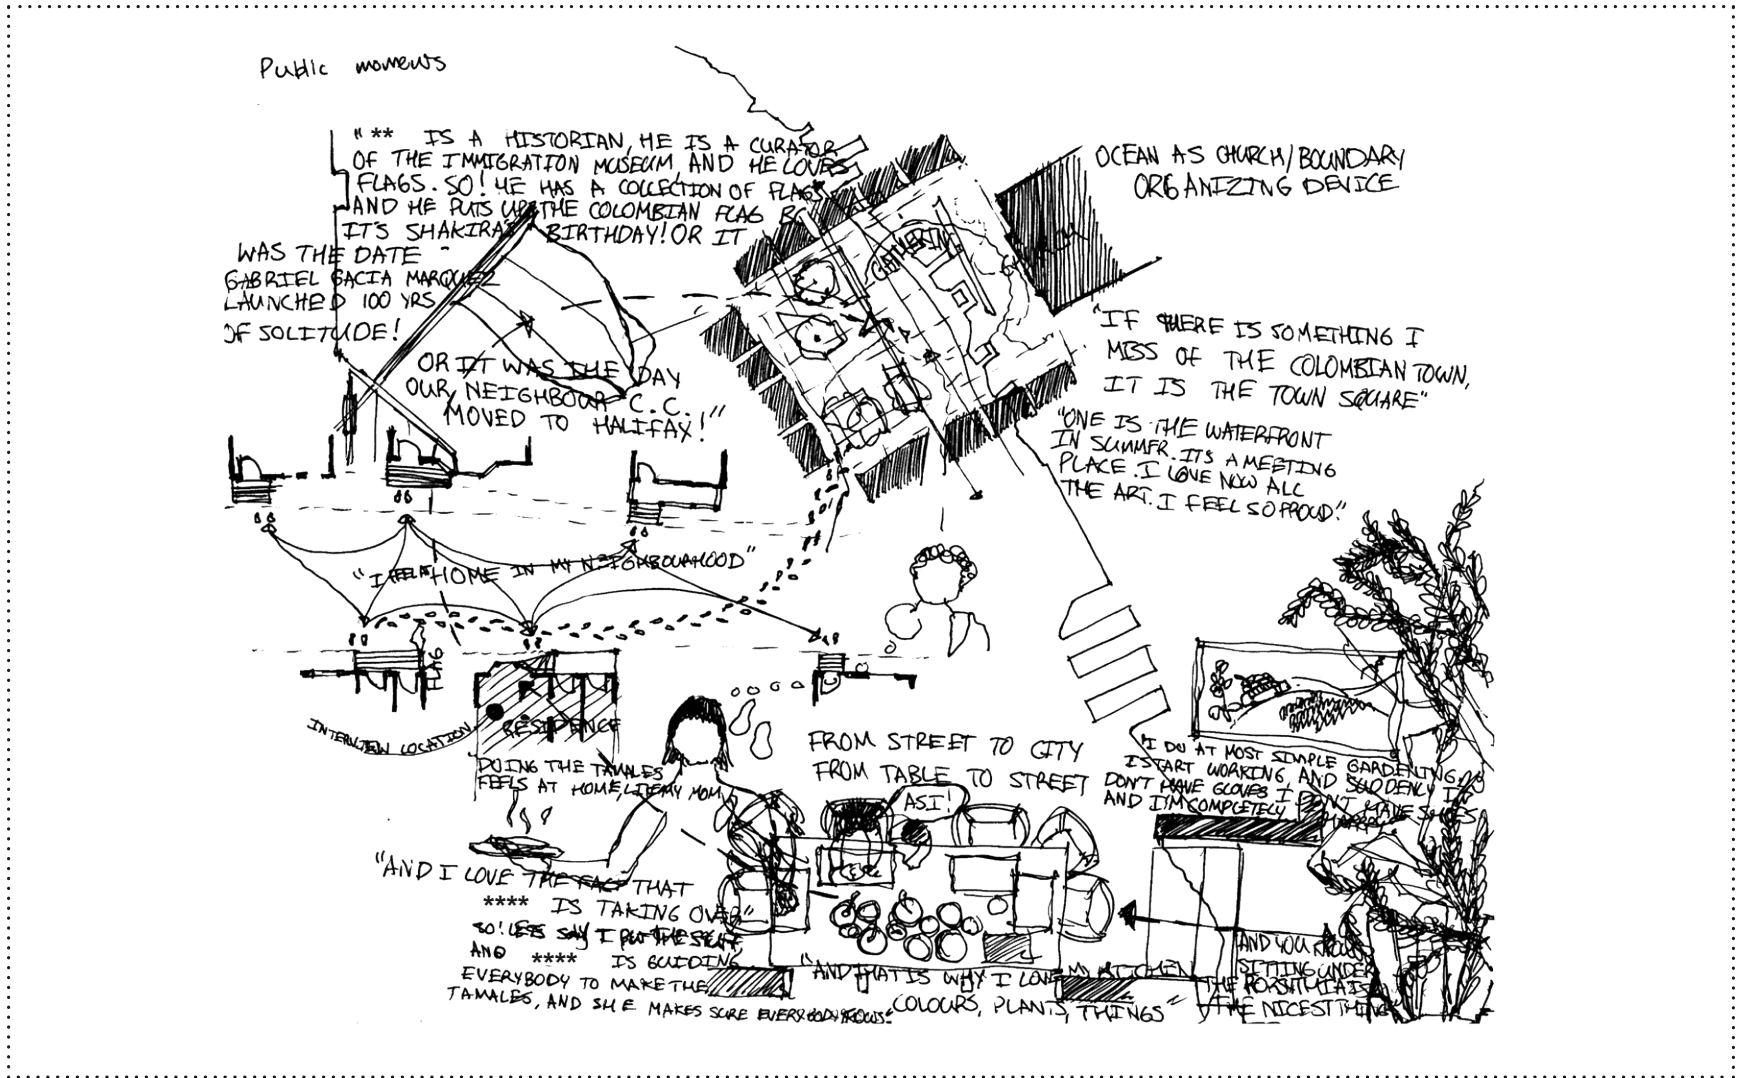 Public moments
" ** IS A HISTORIAN, HE IS A CURATOR
OF THE IMMIGRATION MUSEUM, AND HE LOVES
FLAGS. SO! HE HAS A COLLECTION OF FLAGS
AND HE PUTS UP THE COLOMBIAN FLAG BC
IT'S SHAKIRA'S BIRTHDAY! OR IT
WAS THE DATE
GABRIEL GACIA MARQUEZ
LAUNCHED 100 YRS
OF SOLITUDE!
OR IT WAS THE DAY
OUR NEIGHBOUR C.C.
MOVED TO HALIFAX!"
GATHERING
OCEAN AS CHURCH/BOUNDARY
ORGANIZING DEVICE
"IF THERE IS SOMETHING I
MISS OF THE COLOMBIAN TOWN,
IT IS THE TOWN SQUARE"
"ONE IS THE WATERFRONT
IN SUMMER. ITS A MEETING
PLACE. I LOVE NOW ALL
THE ART. I FEEL SO PROUD."
"I FEEL AT HOME IN MY NEIGHBOURHOOD"
FLAG
INTERVIEW LOCATION
RESIDENCE
DOING THE TAMALES
FEELS AT HOME, LIKE MY MOM
FROM STREET TO CITY
FROM TABLE TO STREET
ASI!
"I DO AT MOST SIMPLE GARDENING, SO
I START WORKING, AND SUDDENLY I
DON'T HAVE GLOVES I DON'T HAVE SHOES
AND I'M COMPLETELY HAPPY
"AND I LOVE THE FACT THAT
**** IS TAKING OVER"
SO! LETS SAY I PUT THE STUFF,
AND **** IS GUIDING
EVERYBODY TO MAKE THE
TAMALES, AND SHE MAKES SURE EVERYBODY KNOWS."
"AND THAT IS WHY I LOVE MY KITCHEN
COLOURS, PLANTS, THINGS"
AND YOU KNOW
SITTING UNDER
THE FORSYTHIA IS
THE NICEST THING"